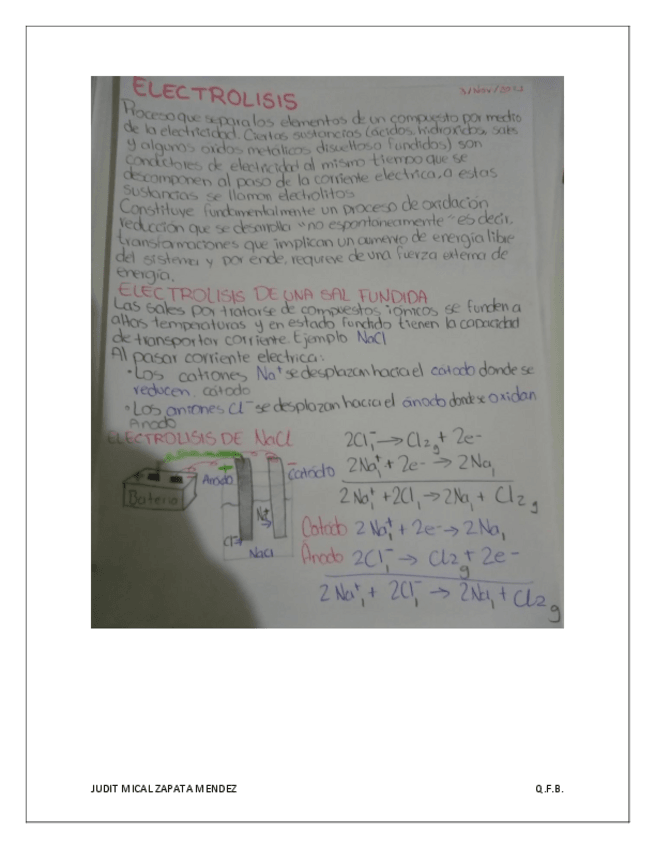 ELECTROLISIS
Proceso que separa los elementos de un compuesto por medio
de la electricidad. Ciertas sustancias (ácidos, hidroxidos, sales
y algunos oxidos metálicos disueltos o fundidos) son
conductores de electricidad al mismo tiempo que se
descomponen al paso de la corriente electrica, a estas
sustancias se llaman electrolitos
Constituye fundamentalmente un proceso de oxidación
reducción que se desarrolla "no espontaneamente" es decir,
transformaciones que implican un aumento de energía libre
del sistema y por ende, requiere de una fuerza externa de
energía.
ELECTROLISIS DE UNA SAL FUNDIDA
Las sales por tratarse de compuestos iónicos se funden a
altas temperaturas y en estado fundido tienen la capacidad
de transportar corriente. Ejemplo NaCl
Al pasar corriente electrica:
• Los cationes Na⁺ se desplazan hacia el cátodo donde se
reducen. cátodo
• Los aniones Cl⁻ se desplazan hacia el ánodo donde se oxidan
Anodo
ELECTROLISIS DE NaCl
2Cl₁⁻ → Cl₂g + 2e-
2Na₁⁺ + 2e- → 2Na₁
2Na₁⁺ + 2Cl₁ → 2Na₁ + Cl₂g
Bateria
+
Anodo
-
Catódo
Na⁺
Cl⁻
NaCl
Catódo 2Na₁⁺ + 2e- → 2Na₁
Ánodo 2Cl₁⁻ → Cl₂g + 2e-
2Na₁⁺ + 2Cl₁⁻ → 2Na₁ + Cl₂g
JUDIT MICAL ZAPATA MENDEZ
Q.F.B.